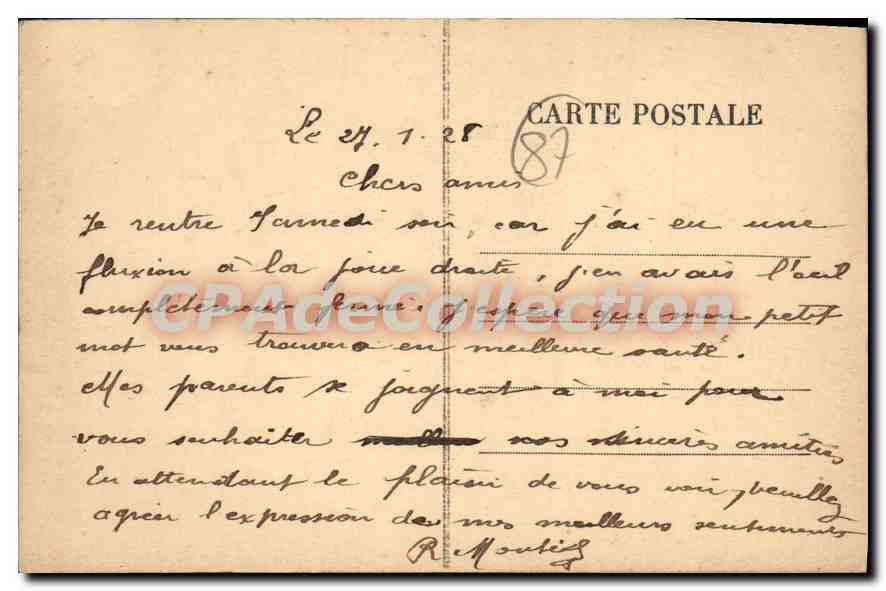 CARTE POSTALE
87
Le 27. 1. 28
Chers amis
Je rentre Samedi soir, car j'ai eu une
fluxion à la joue droite, j'en avais l'oeil
complètement fermé. j'espère que mon petit
mot vous trouvera en meilleure santé.
Mes parents se joignent à moi pour
vous souhaiter nos sincères amitiés
En attendant le plaisir de vous voir, veuillez
agréer l'expression de mes meilleurs sentiments
R
CPAdeCollection